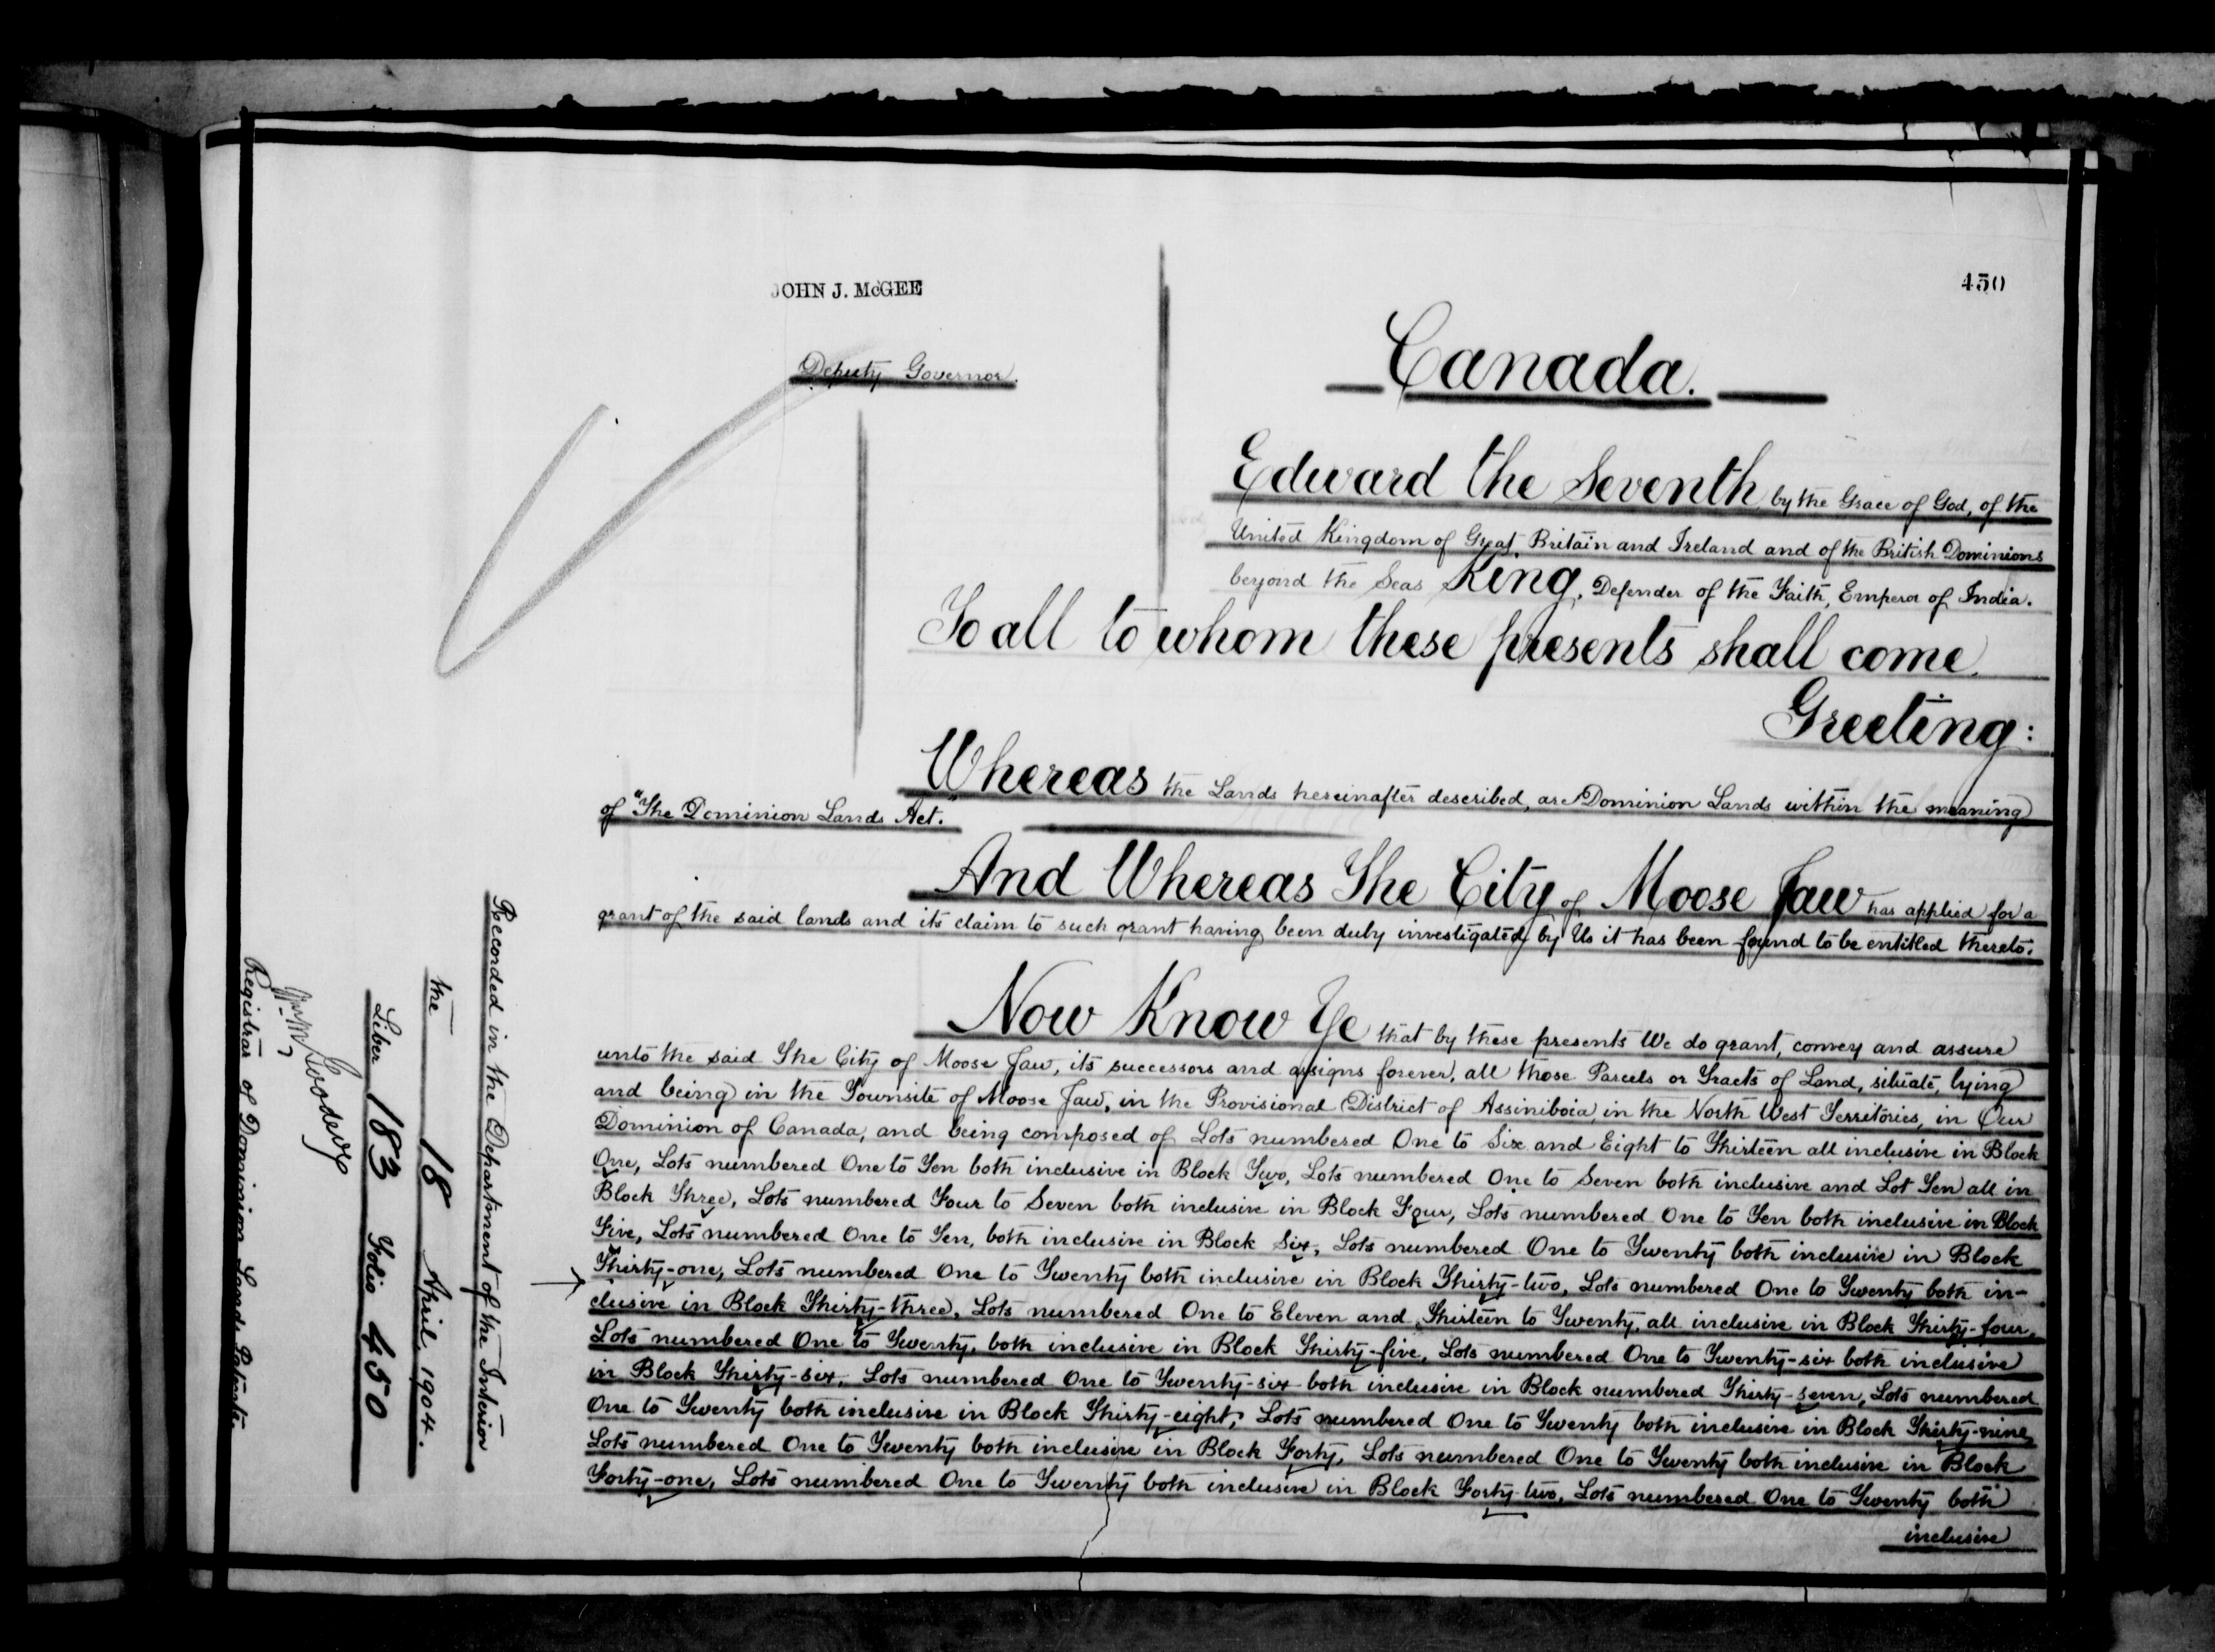 450
JOHN J. McGEE
Deputy Governor.
Canada.
Edward the Seventh, by the Grace of God, of the
United Kingdom of Great Britain and Ireland and of the British Dominions
beyond the Seas King, Defender of the Faith, Emperor of India.
To all to whom these presents shall come,
Greeting:
Whereas the Lands hereinafter described, are Dominion Lands within the meaning
of "The Dominion Lands Act."
And Whereas The City of Moose Jaw has applied for a
grant of the said lands and its claim to such grant having been duly investigated by Us it has been found to be entitled thereto.
Now Know Ye that by these presents We do grant, convey and assure
unto the said The City of Moose Jaw, its successors and assigns forever, all those Parcels or Tracts of Land, situate, lying
and being in the Townsite of Moose Jaw, in the Provisional District of Assiniboia, in the North West Territories, in Our
Dominion of Canada, and being composed of Lots numbered One to Six and Eight to Thirteen all inclusive in Block
One, Lots numbered One to Ten both inclusive in Block Two, Lots numbered One to Seven both inclusive and Lot Ten all in
Block Three, Lots numbered Four to Seven both inclusive in Block Four, Lots numbered One to Ten both inclusive in Block
Five, Lots numbered One to Ten, both inclusive in Block Six, Lots numbered One to Twenty both inclusive in Block
Thirty-one, Lots numbered One to Twenty both inclusive in Block Thirty-two, Lots numbered One to Twenty both in-
clusive in Block Thirty-three, Lots numbered One to Eleven and Thirteen to Twenty, all inclusive in Block Thirty-four,
Lots numbered One to Twenty, both inclusive in Block Thirty-five, Lots numbered One to Twenty-six both inclusive
in Block Thirty-six, Lots numbered One to Twenty-six both inclusive in Block numbered Thirty-seven, Lots numbered
One to Twenty both inclusive in Block Thirty-eight, Lots numbered One to Twenty both inclusive in Block Thirty-nine,
Lots numbered One to Twenty both inclusive in Block Forty, Lots numbered One to Twenty both inclusive in Block
Forty-one, Lots numbered One to Twenty both inclusive in Block Forty-two, Lots numbered One to Twenty both
inclusive
Recorded in the Department of the Interior
the 18 April, 1904.
Liber 183 Folio 450
Wm M Goodeve
Registrar of Dominion Lands Patents.